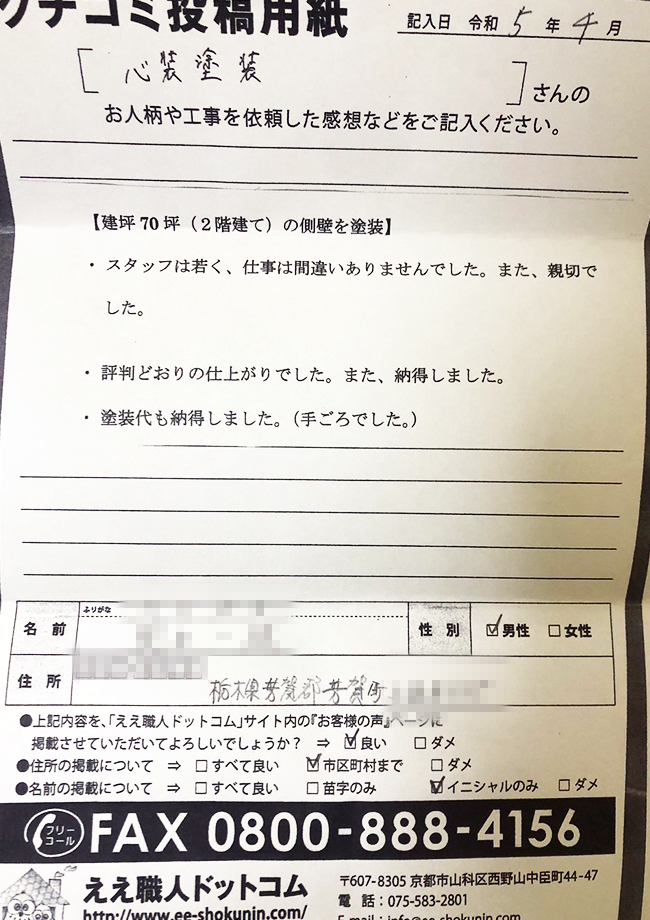 クチコミ投稿用紙
記入日 令和 5 年 4 月
[心装塗装]さんの
お人柄や工事を依頼した感想などをご記入ください。
【建坪70坪（２階建て）の側壁を塗装】
・スタッフは若く、仕事は間違いありませんでした。また、親切で
した。
・評判どおりの仕上がりでした。また、納得しました。
・塗装代も納得しました。（手ごろでした。）
ふりがな
名前
性別 ☑男性 □女性
住所 栃木県芳賀郡芳賀町
●上記内容を、「ええ職人ドットコム」サイト内の『お客様の声』ページに
掲載させていただいてよろしいでしょうか？ ⇒ ☑良い □ダメ
●住所の掲載について ⇒ □すべて良い ☑市区町村まで □ダメ
●名前の掲載について ⇒ □すべて良い □苗字のみ ☑イニシャルのみ □ダメ
フリーコール FAX 0800-888-4156
ええ職人ドットコム
http://www.ee-shokunin.com/
〒607-8305 京都市山科区西野山中臣町44-47
電 話：075-583-2801
E-mail：info@ee-shokunin.com